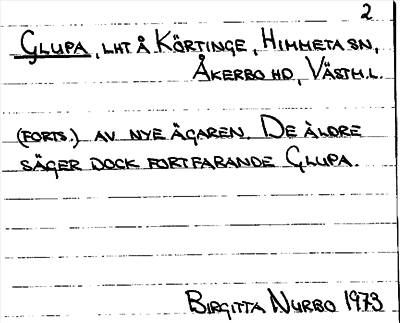 2
GLUPA, LHT Å KÖRTINGE, HIMMETA SN,
ÅKERBO HD, VÄSTM.L.
(FORTS.) AV NYE ÄGAREN. DE ÄLDRE
SÄGER DOCK FORTFARANDE GLUPA.
BIRGITTA NURBO 1973